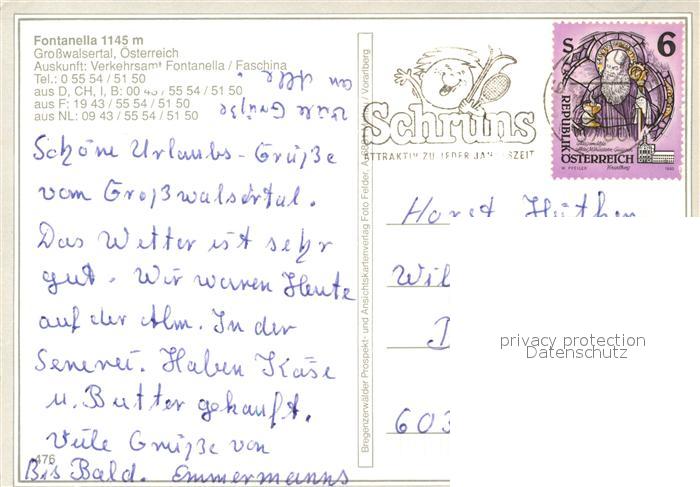 Fontanella 1145 m
Großwalsertal, Österreich
Auskunft: Verkehrsamt Fontanella / Faschina
Tel.: 0 55 54 / 51 50
aus D, CH, I, B: 00 43 / 55 54 / 51 50
aus F: 19 43 / 55 54 / 51 50
aus NL: 09 43 / 55 54 / 51 50
Schöne Urlaubs-Grüße
vom Großwalsertal.
Das Wetter ist sehr
gut. Wir waren Heute
auf der Alm. In der
Senerei. Haben Käse
u. Butter gekauft.
Viele Grüße von
Bis Bald. Emmermanns
476
Bregenzerwälder Prospekt- und Ansichtskartenverlag Foto Felder,
Vorarlberg
Schruns
ATTRAKTIV ZU JEDER JAHRESZEIT
S 6
REPUBLIK
ÖSTERREICH
Horst
Wil
603
privacy protection
Datenschutz